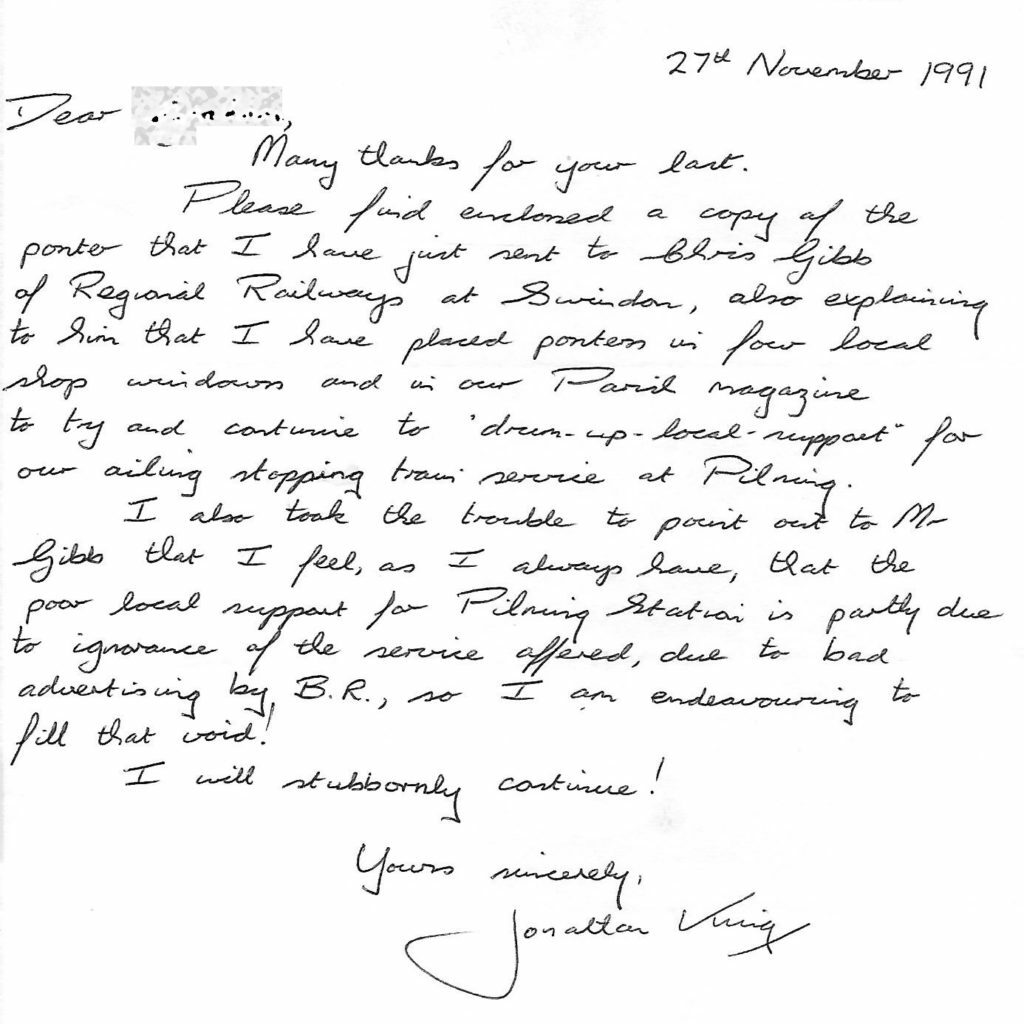 27th November 1991
Dear
Many thanks for your last.
Please find enclosed a copy of the
poster that I have just sent to Chris Gibb
of Regional Railways at Swindon, also explaining
to him that I have placed posters in four local
shop windows and in our Parish magazine
to try and continue to "drum-up-local-support" for
our ailing stopping train service at Pilning.
I also took the trouble to point out to Mr
Gibb that I feel, as I always have, that the
poor local support for Pilning Station is partly due
to ignorance of the service offered, due to bad
advertising by B.R., so I am endeavouring to
fill that void!
I will stubbornly continue!
Yours sincerely,
Jonathan